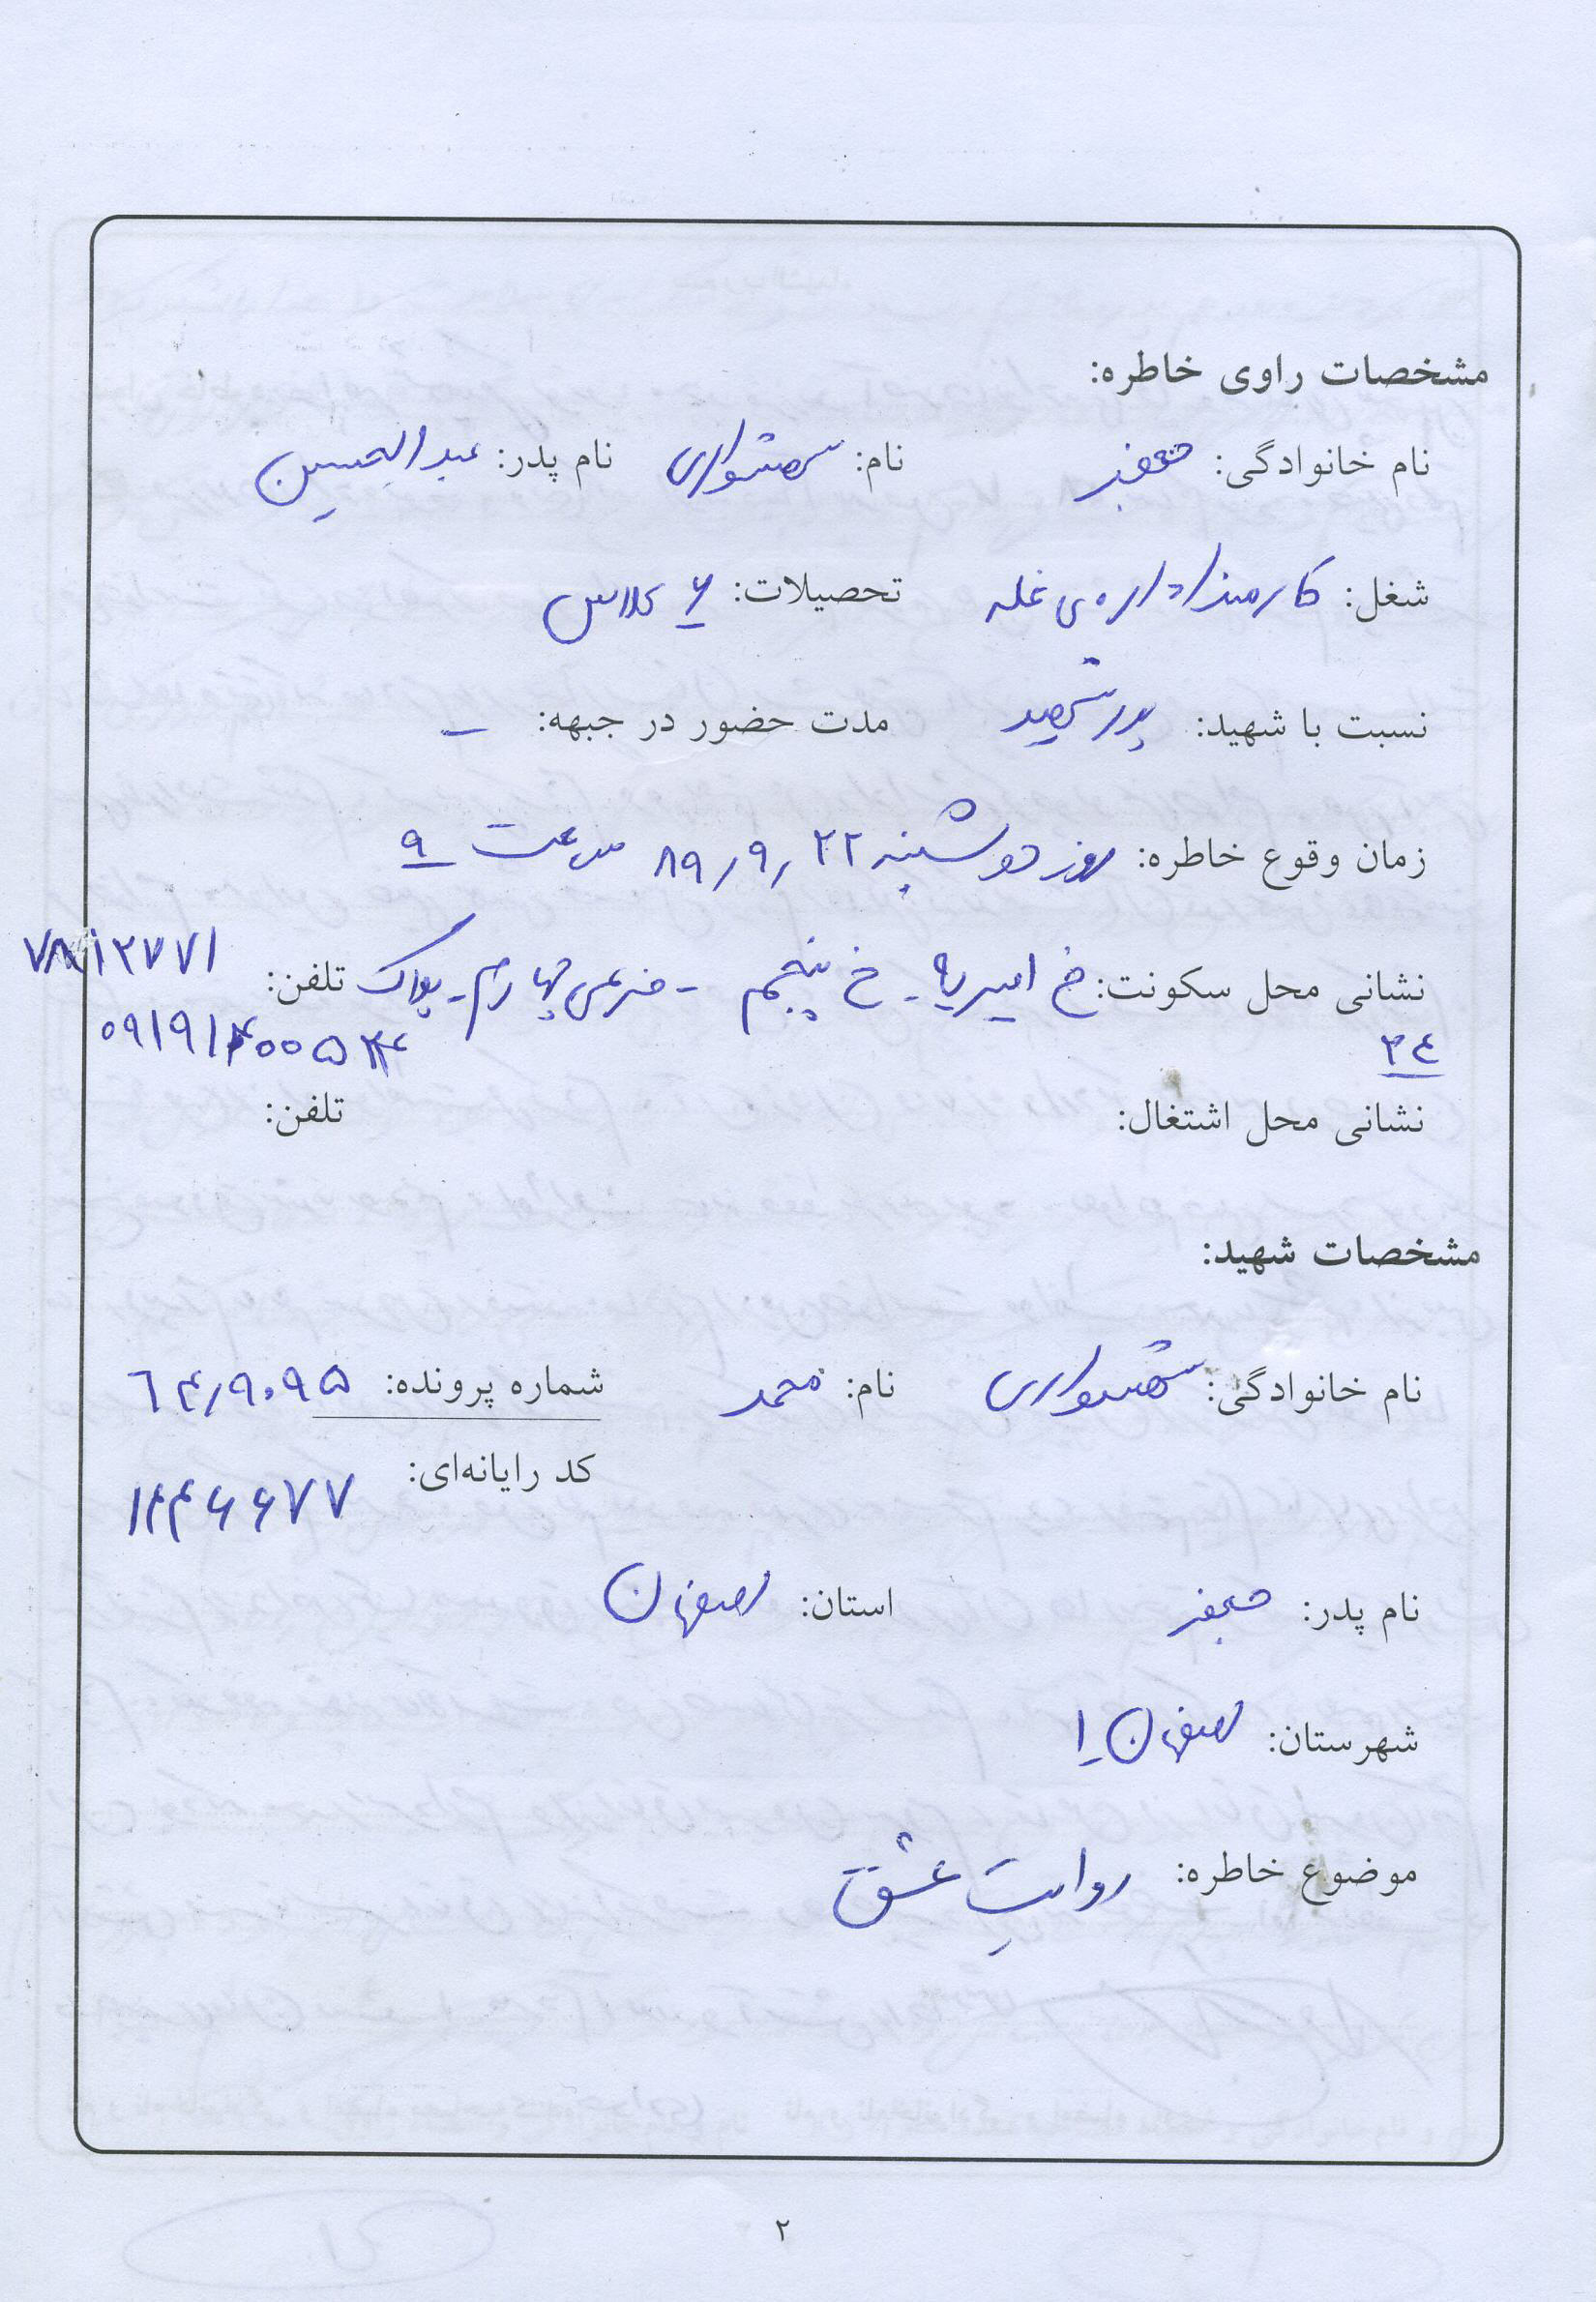 مشخصات راوی خاطره:
نام خانوادگی: جعفر نام: شهسواری نام پدر: عبدالحسین
شغل: کارمند اداره ی غله تحصیلات: ۶ کلاس
نسبت با شهید: پدر شهید مدت حضور در جبهه: –
زمان وقوع خاطره: روز دوشنبه ۲۲ / ۹ / ۸۹ ساعت ۹
نشانی محل سکونت: خ امیریه - خ پنجم - فرعی چهارم - پلاک تلفن: ۷۸۱۲۷۷۱
۳۴
نشانی محل اشتغال: تلفن:
مشخصات شهید:
نام خانوادگی: شهسواری نام: محمد شماره پرونده: ۶۴/۹۰۹۵
کد رایانه‌ای:
نام پدر: جعفر استان: اصفهان
شهرستان: اصفهان ۱
موضوع خاطره: روایتِ عشق
۲